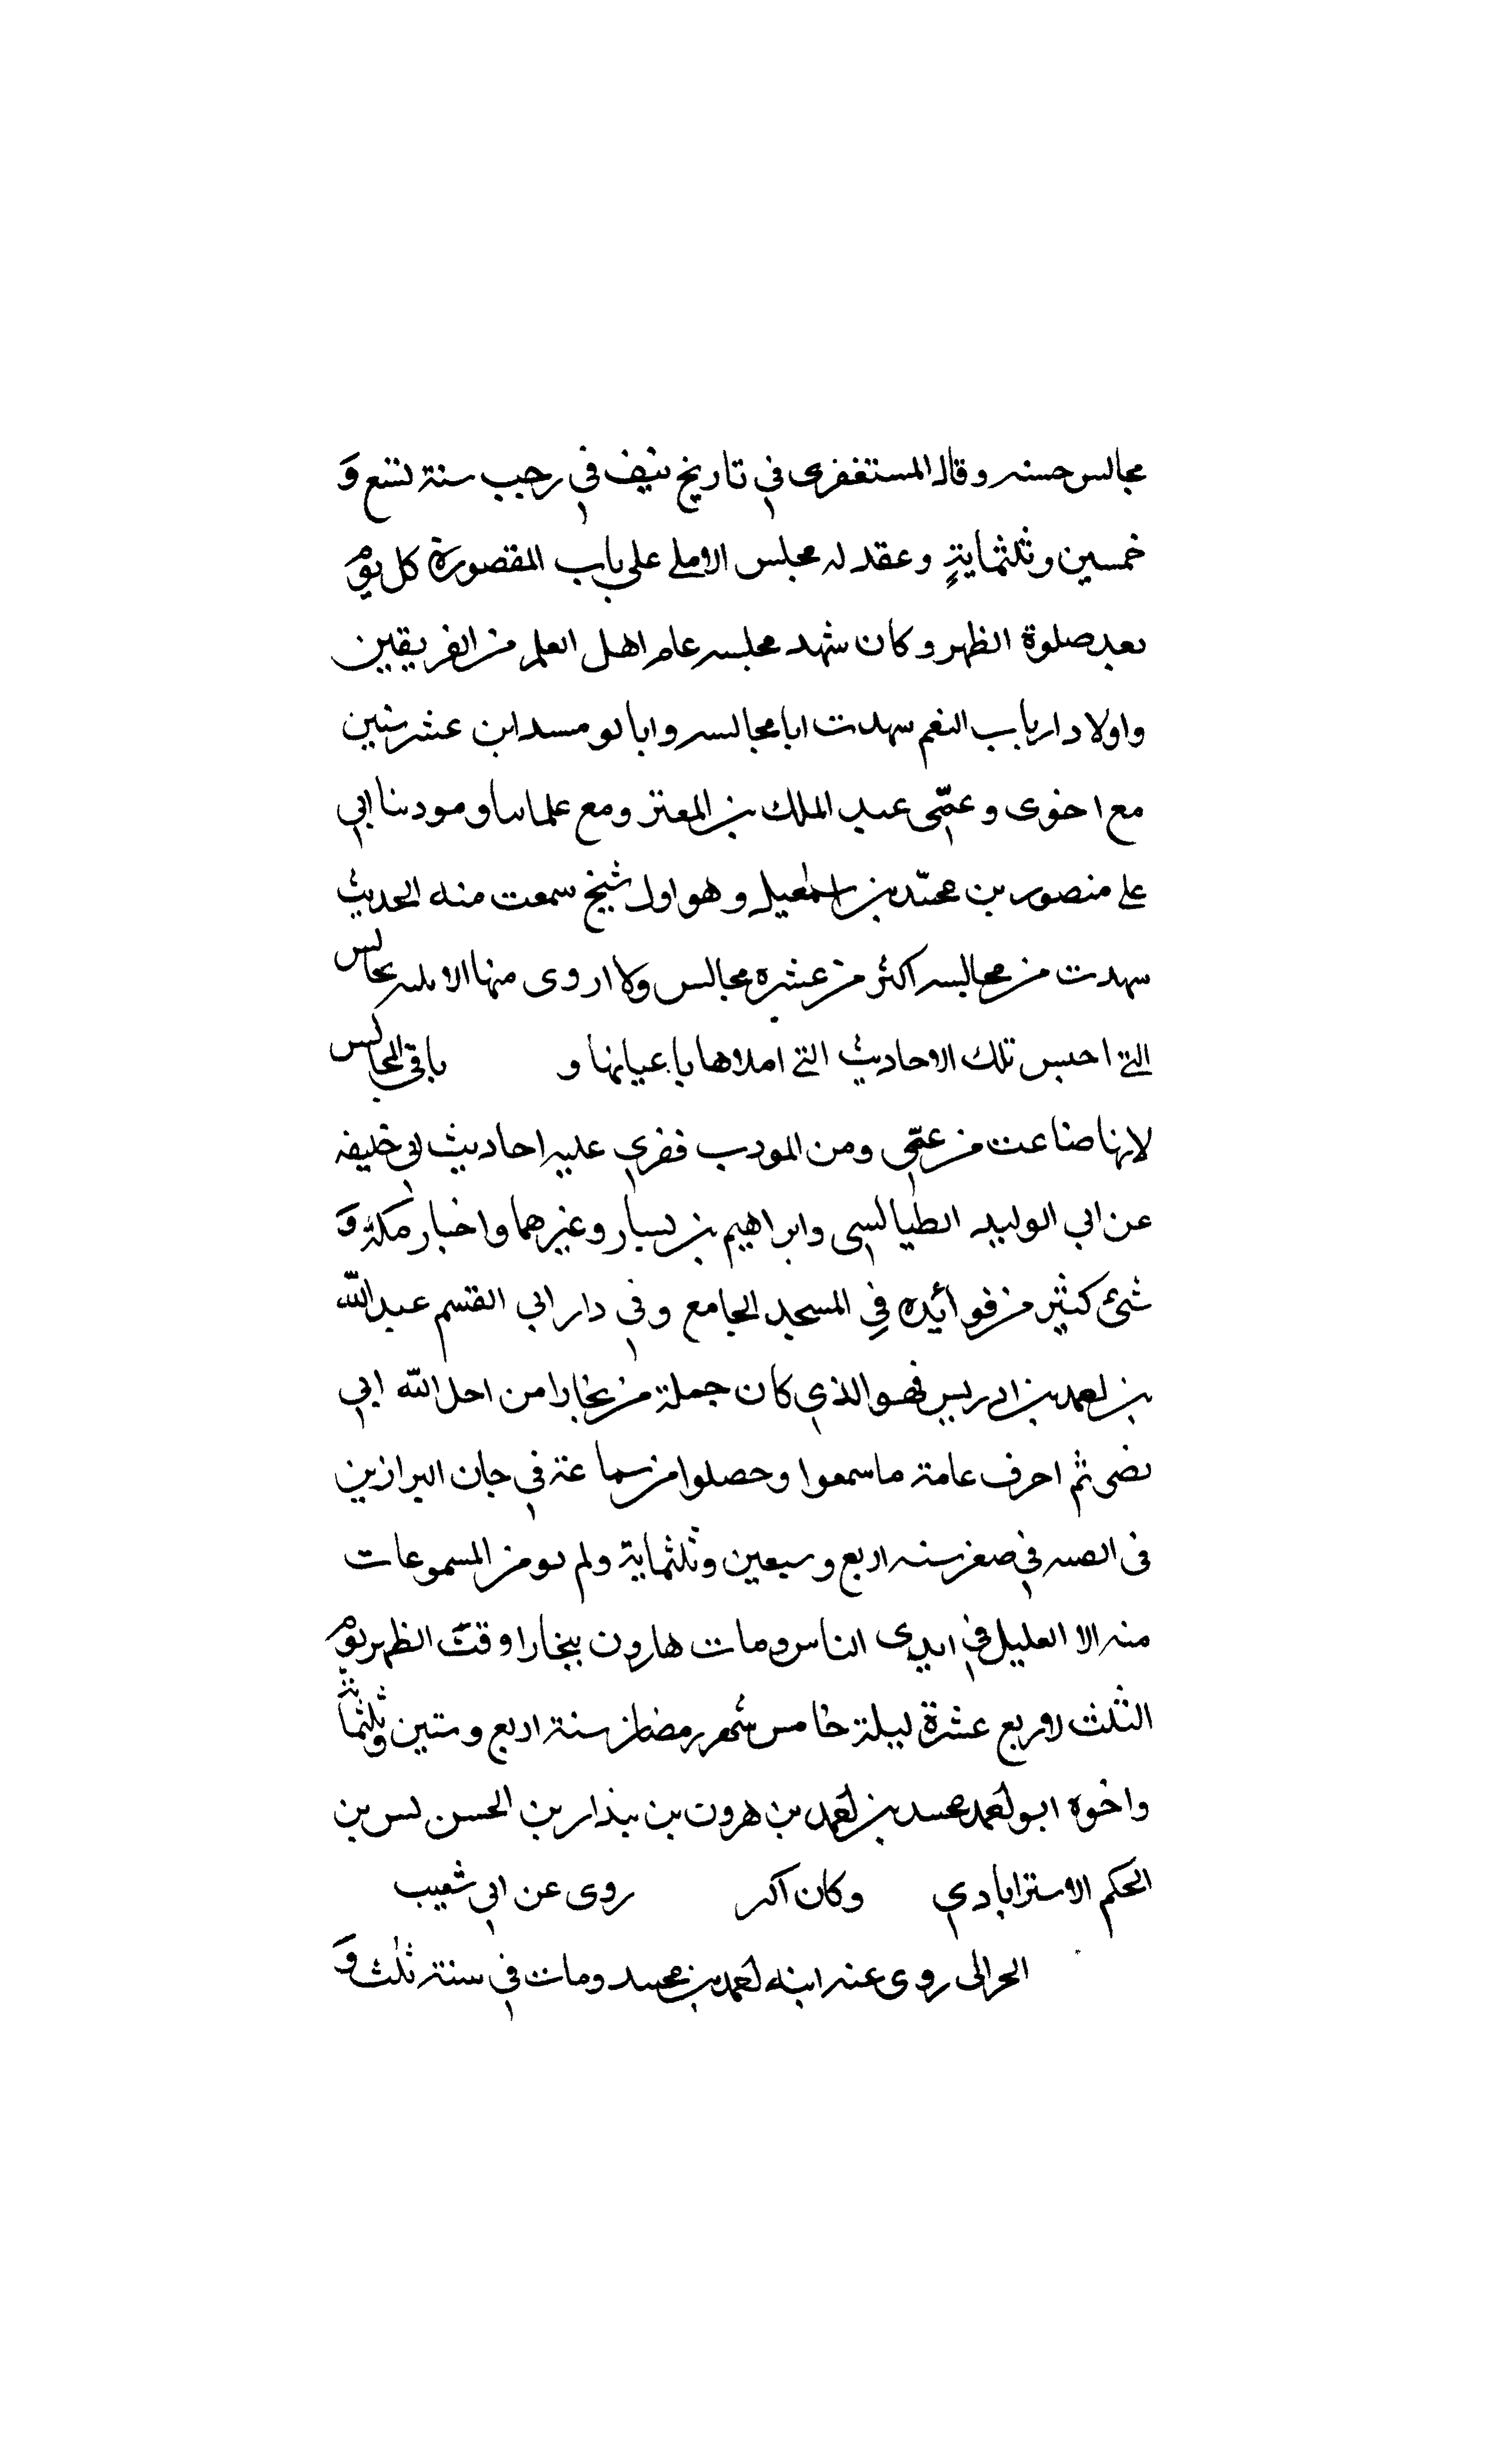 مجالس حسنه وقال المستغفرى في تاريخ نيف في رجب سنة تسع وَ
خمسين وثلثمايةٍ وعقد له مجلس الاملى على باب المقصورة كل يوم
بعد صلوة الظهر وكان شهد مجلسه عامه اهل العلم من الفريقين
واولاد ارباب النعم سهدت انا مجالسه وانا يومسد ابن عشر سنين
مع اخوى وعمّى عبد الملك بن المعتز ومع علماسا ومودبنا ابي
على منصور بن محمّد بن اسمعيل وهو اول شيخ سمعت منه الحديث
سهدت من مجالسه اكثر من عشره مجالس ولا اروى منها الا ملىه مجالس
التى احسس تلك الاحاديث التى املاها باعيانها و باقي المجالس
لانها ضاعت من عمّى ومن المودب فقرى عليه احاديث ابي خليفه
عن ابي الوليد الطيالسى وابراهيم بن بسار وغيرهما واخبار مكة وَ
شئ كثير من فوائده فِي المسجد الجامع وفي دار ابي القسم عبد الله
بن احمد بن ادريس فهو الذي كان جملة من بخارا من اجل الله ابي
نضى ثم احرف عامة ما سمعوا وحصلوا من سماعة في جان البرازين
فى الصسه في صفر سنه اربع وسبعين وثلثماية ولم يومز المسموعات
منه الا العليل في ايدى الناس ومات هارون ببخارا وقت الظهر يوم
الثلث لاربع عشرة ليلة خامس شهر رمضان سنة اربع وستين وثلثماية
واخوه ابو احمد محمد بن احمد بن هرون بن بندار بن الحسن لس بن
الحكم الاسترابادي وكان اكبر روى عن ابي شعيب
الحرانى روى عنه ابنه احمد بن محمد ومات في سنة ثلث وَ